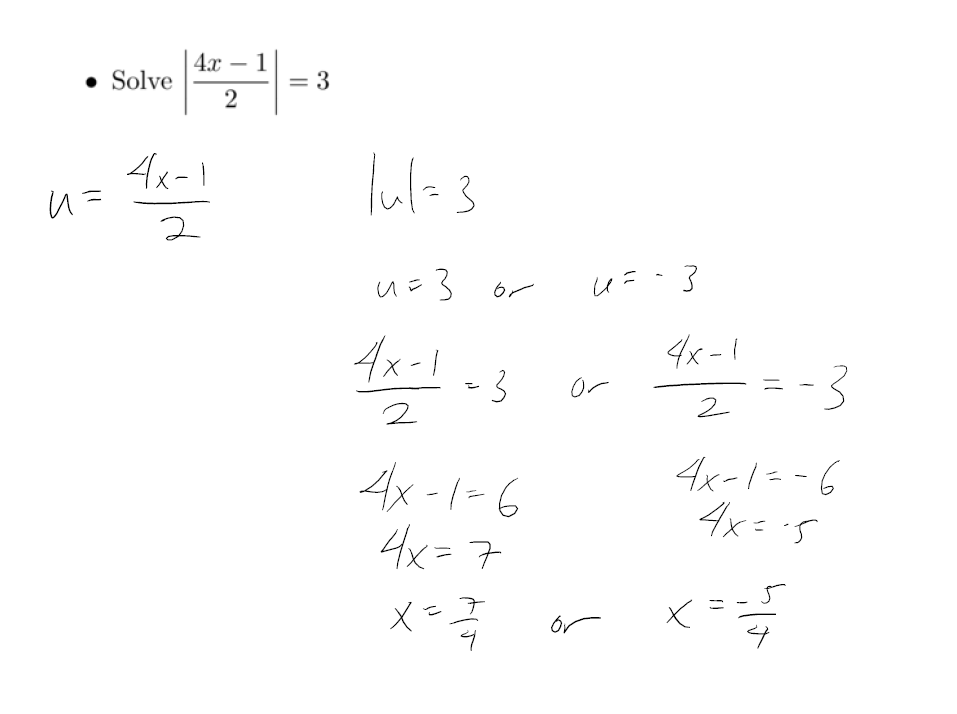 • Solve |(4x − 1)/2| = 3
u = (4x-1)/2    |u| = 3
u = 3 or u = -3
(4x-1)/2 = 3 or (4x-1)/2 = -3
4x-1 = 6    4x-1 = -6
4x = 7    4x = -5
x = 7/4 or x = -5/4